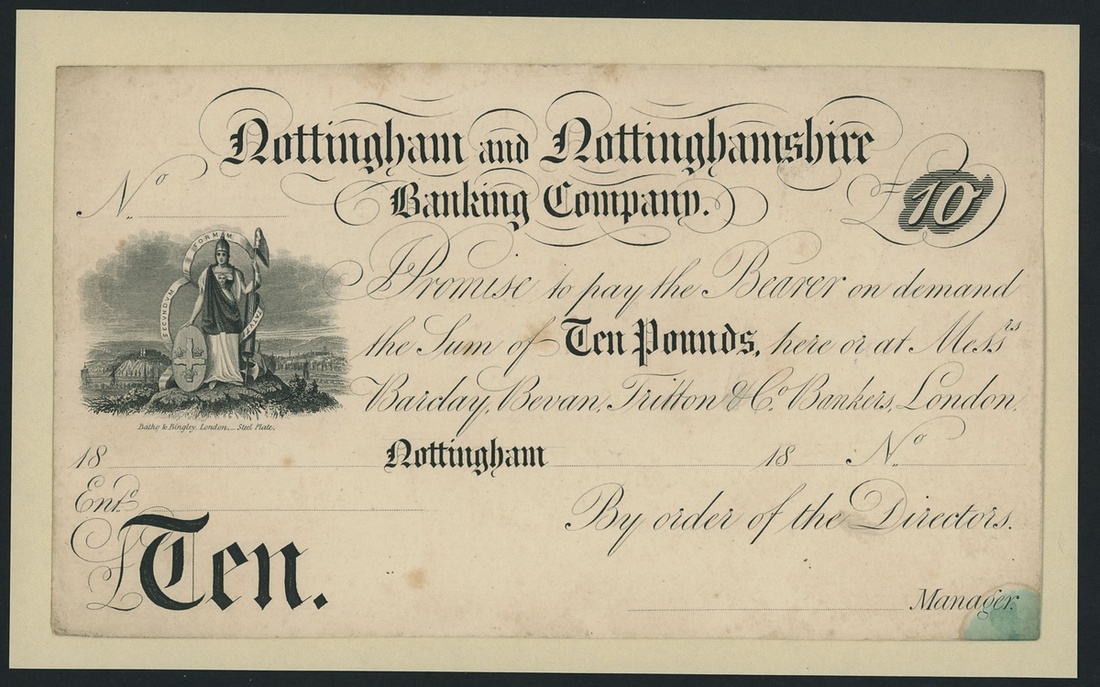 Nottingham and Nottinghamshire
Banking Company.
No.
£10
SECUNDUM FORMAM STATUTI
Bathe & Bingley. London. Steel Plate.
I Promise to pay the Bearer on demand
the Sum of Ten Pounds, here or at Messrs
Barclay, Bevan, Tritton & Co. Bankers, London.
18 Nottingham 18 No.
Entd.
By order of the Directors.
£Ten.
Manager.